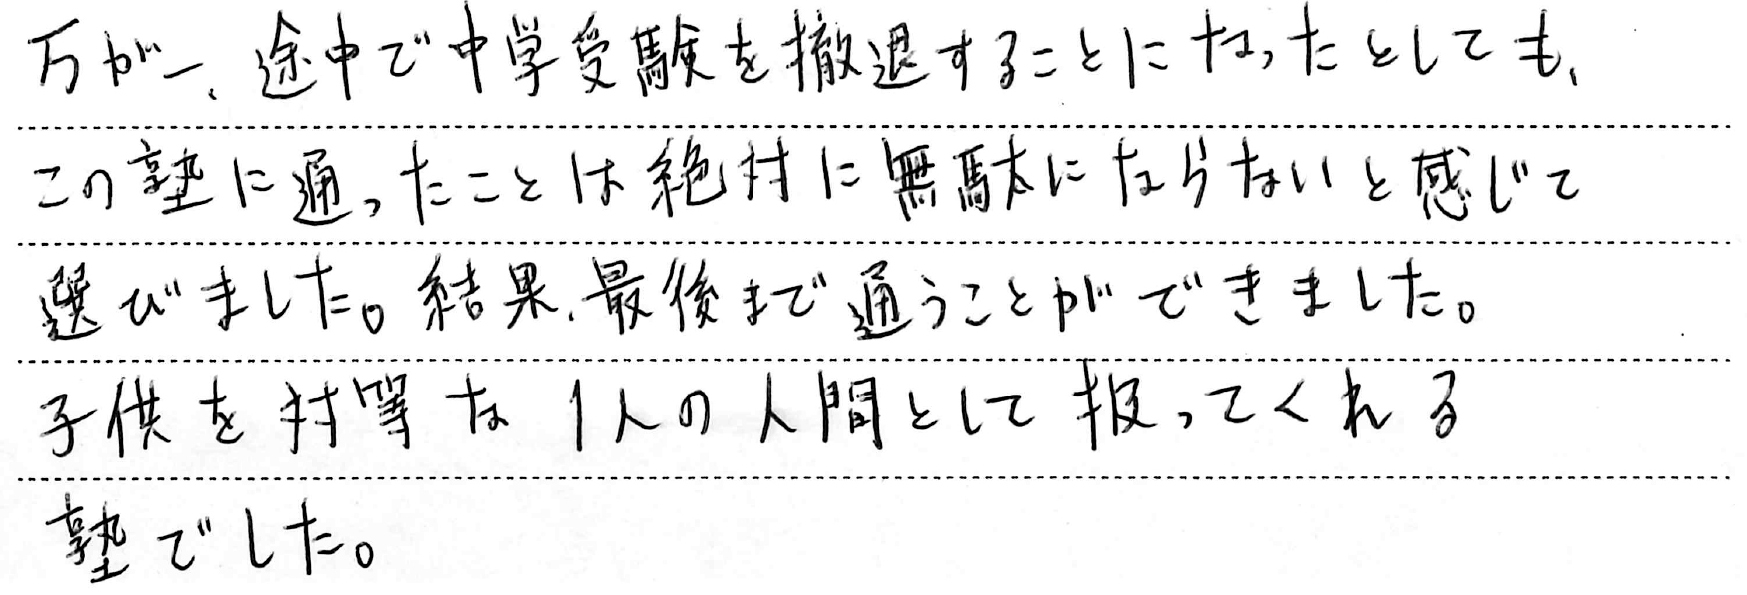 万が一、途中で中学受験を撤退することになったとしても、
この塾に通ったことは絶対に無駄にならないと感じて
選びました。結果、最後まで通うことができました。
子供を対等な1人の人間として扱ってくれる
塾でした。